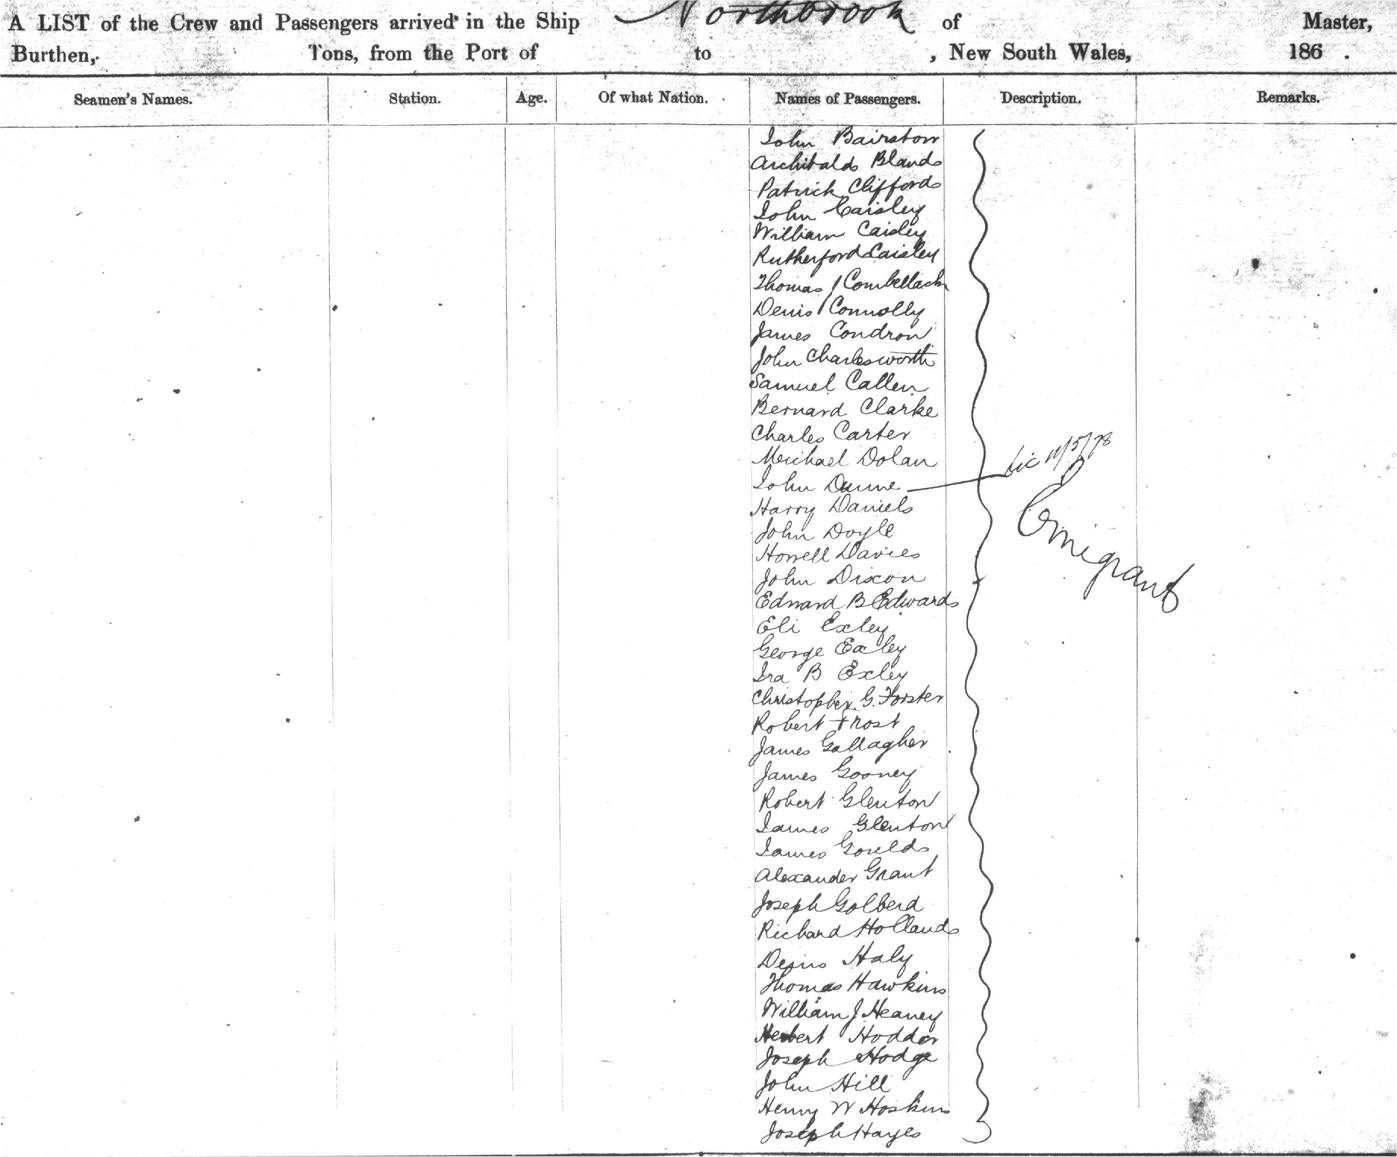 A LIST of the Crew and Passengers arrived in the Ship Northbrook of Master,
Burthen, Tons, from the Port of to , New South Wales, 186 .
Seamen's Names. Station. Age. Of what Nation. Names of Passengers. Description. Remarks.
John Bairstow
Archibald Bland
Patrick Clifford
John Caisley
William Caisley
Rutherford Caisley
Thomas Combellack
Denis Connolly
James Condron
John Charlesworth
Samuel Callen
Bernard Clarke
Charles Carter
Michael Dolan
John Dunne 11/5/78
Harry Daniels
John Doyle
Howell Davies
John Dixon
Edward B Edwards
Emigrant
Eli Exley
George Exley
Ira B Exley
Christopher G. Forster
Robert Frost
James Gallagher
James Gooney
Robert Glenton
James Glenton
James Gould
Alexander Grant
Joseph Golberd
Richard Holland
Denis Haly
Thomas Hawkins
William J Heaney
Herbert Hodder
Joseph Hodge
John Hill
Henry W Hoskins
Joseph Hayes